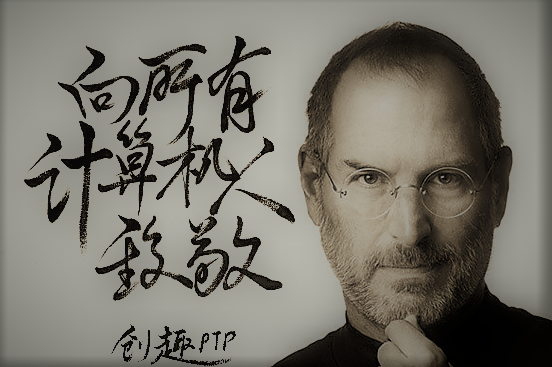 向所有
计算机人
致敬
创趣PTP